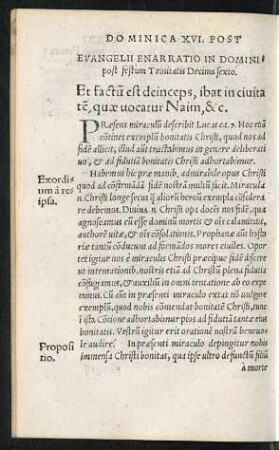 DOMINICA XVI. POST
EVANGELII ENARRATIO IN DOMINI
post festum Trinitatis Decima sexto.
Et factũ est deinceps, ibat in ciuita
tẽ, quæ uocatur Naim, &c.
PRæsens miraculũ describit Lucas ca. 7. Hoc etiã
cõtinet exemplũ bonitatis Christi, quod nos ad
fidẽ allicit, illud aũt tractabimus in genere deliberati
uo, & ad fiduciã bonitatis Christi adhortabimur.
Habemus hic præ manib, admirabile opus Christi
Exordi quod ad cõfirmandã fidẽ nostrã multũ facit. Miracula
um à re n. Christi longe secus q̃ aliorũ heroũ exempla cõsidera
ipsa. re debemus. Diuina. n. Christi ops docẽt nos fidẽ, quæ
agnoscamus eũ esse dominũ mortis & oĩs calamitatis,
authorẽ uitæ, & oĩs cõsolationis. Prophanæ aũt histo
riæ tantũ cõducunt ad formãdos mores ciuiles. Opor
tet igitur nos è miraculis Christi præcipue fidẽ discere
ut intenationib. nostris etiã ad Christũ plena fiducia
cõfugiamus, & auxiliũ in omni tentatione ab eo expe
ctemus. Cũ aũt in præsenti miraculo extat nõ uulgare
exemplũ, quod nobis immensã bonitatẽ Christi, tune
ri istõ. Cõtione adhortabimur pios ad fiduciã tantæ eius
bonitatis. Vestrũ igitur erit orationẽ nostrã beneuo
Proposi le audire. In præsenti miraculo depingitur nobis
tio. immensa Christi bonitas, qua ipse ultro defunctũ filiũ
à morte